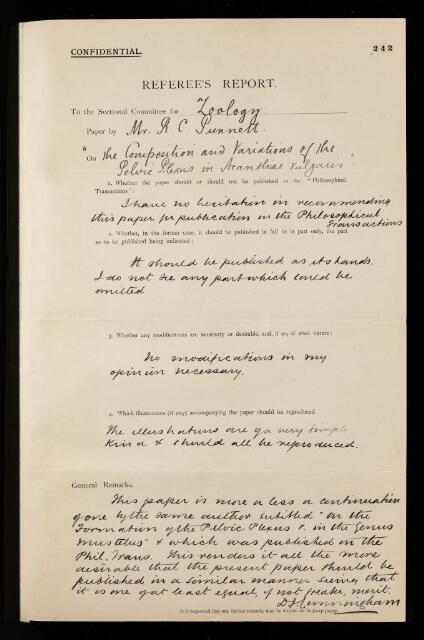 CONFIDENTIAL.
242
REFEREE'S REPORT.
To the Sectional Committee for Zoology
Paper by Mr. R. C. Punnett.
On "The Composition and Variations of the
Pelvic Plexus in Acanthias vulgaris"
1. Whether the paper should or should not be published in the "Philosophical
Transactions":
I have no hesitation in recommending
this paper for publication in the Philosophical
Transactions
2. Whether, in the former case, it should be published in full or in part only, the part
so to be published being indicated:
It should be published as it stands.
I do not see any part which could be
omitted
3. Whether any modifications are necessary or desirable, and, if so, of what nature:
No modifications in my
opinion necessary.
4. Which illustrations (if any) accompanying the paper should be reproduced
The illustrations are of a very simple
kind & should all be reproduced.
General Remarks.
This paper is more or less a continuation
of one by the same author entitled "On the
Formation of the Pelvic Plexus &. in the Genus
Mustelus" & which was published in the
Phil. Trans. This renders it all the more
desirable that the present paper should be
published in a similar manner seeing that
it is one of at least equal, if not greater, merit.
D. J. Cunningham
It is requested that any further remarks may be written on